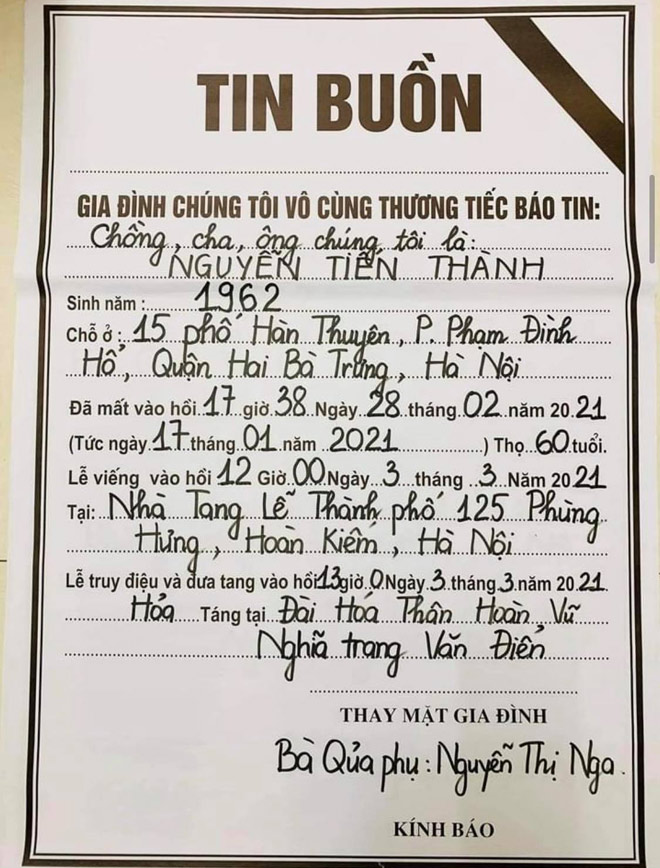 TIN BUỒN
GIA ĐÌNH CHÚNG TÔI VÔ CÙNG THƯƠNG TIẾC BÁO TIN:
Chồng, cha, ông chúng tôi là:
NGUYỄN TIẾN THÀNH
Sinh năm : 1962
Chỗ ở : 15 phố Hàn Thuyên, P. Phạm Đình
Hổ, Quận Hai Bà Trưng, Hà Nội
Đã mất vào hồi 17 giờ 38 Ngày 28 tháng 02 năm 2021
(Tức ngày 17 tháng 01 năm 2021 ) Thọ 60 tuổi.
Lễ viếng vào hồi 12 Giờ 00 Ngày 3 tháng 3 Năm 2021
Tại: Nhà Tang Lễ Thành phố 125 Phùng
Hưng, Hoàn Kiếm, Hà Nội
Lễ truy điệu và đưa tang vào hồi 13 giờ 0 Ngày 3 tháng 3 năm 2021
Hỏa Táng tại Đài Hóa Thân Hoàn Vũ
Nghĩa trang Văn Điển
THAY MẶT GIA ĐÌNH
Bà Qủa phụ : Nguyễn Thị Nga.
KÍNH BÁO